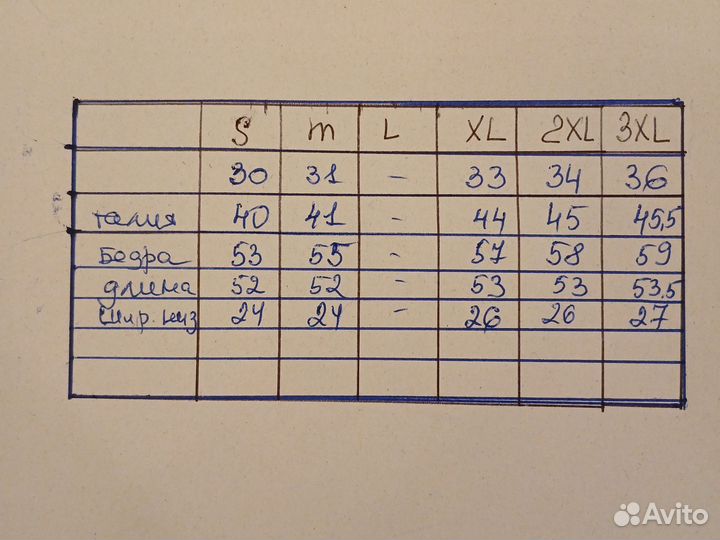 S m L XL 2XL 3XL
30 31 - 33 34 36
талия 40 41 - 44 45 45,5
бедра 53 55 - 57 58 59
длина 52 52 - 53 53 53,5
шир. низ 24 24 - 26 26 27
Avito